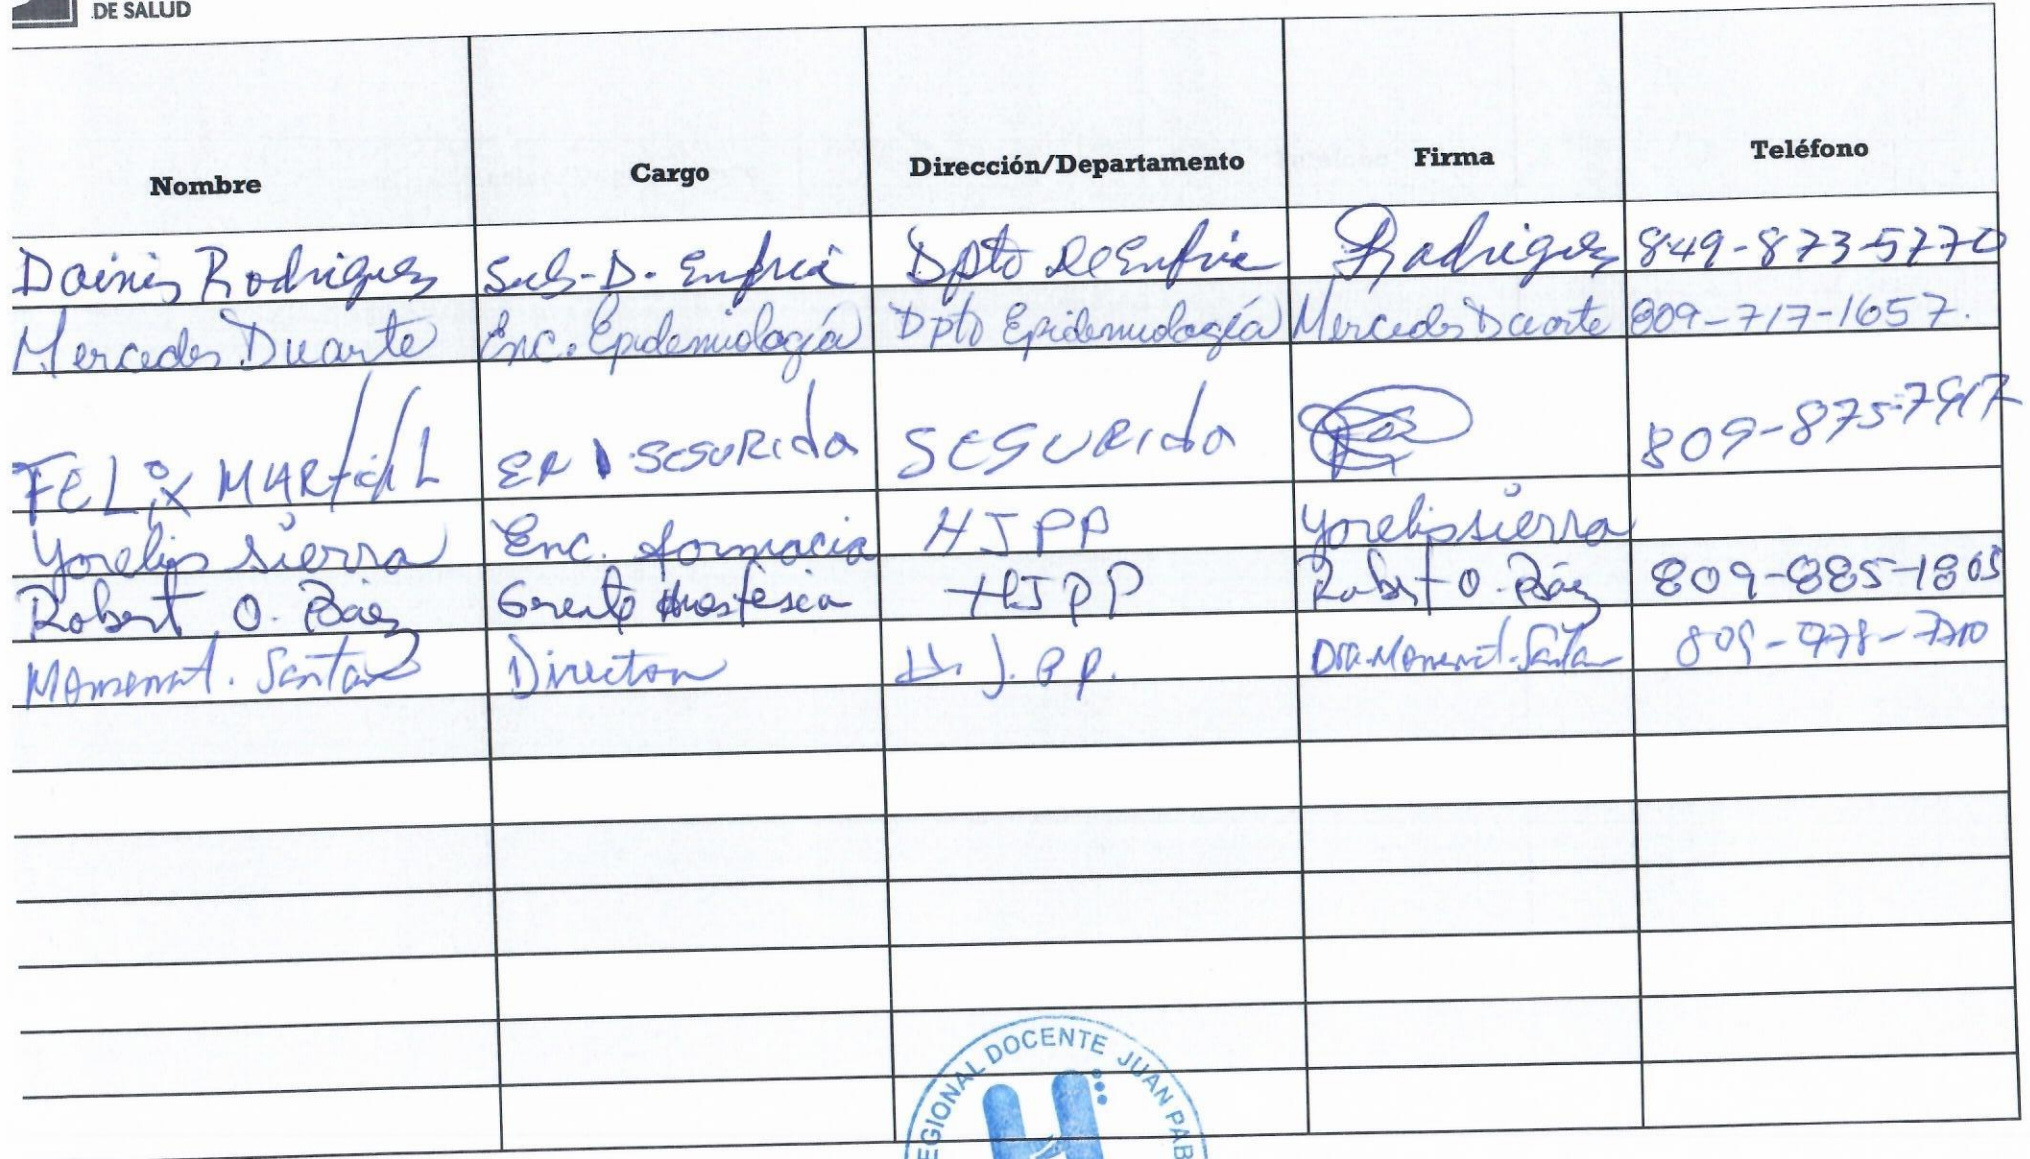 DE SALUD
Nombre Cargo Dirección/Departamento Firma Teléfono
Dainis Rodriguez Sub-D. Enfria Dpto De Enfria Rodriguez 849-873-5770
Mercedes Duarte Enc. Epidemiología Dpto Epidemiología Mercedes Duarte 809-717-1657.
FELix MARtichL SESURida SESURida 809-875-7917
Yorelis sierra Enc. farmacia HJPP Yorelis sierra
Robert O. Baez HJPP Robert O. Báez 809-885-1805
Monserrat. Santan Director H. J. P P. Dra. Monserrat. Santan
EGIONAL DOCENTE JUAN PAB